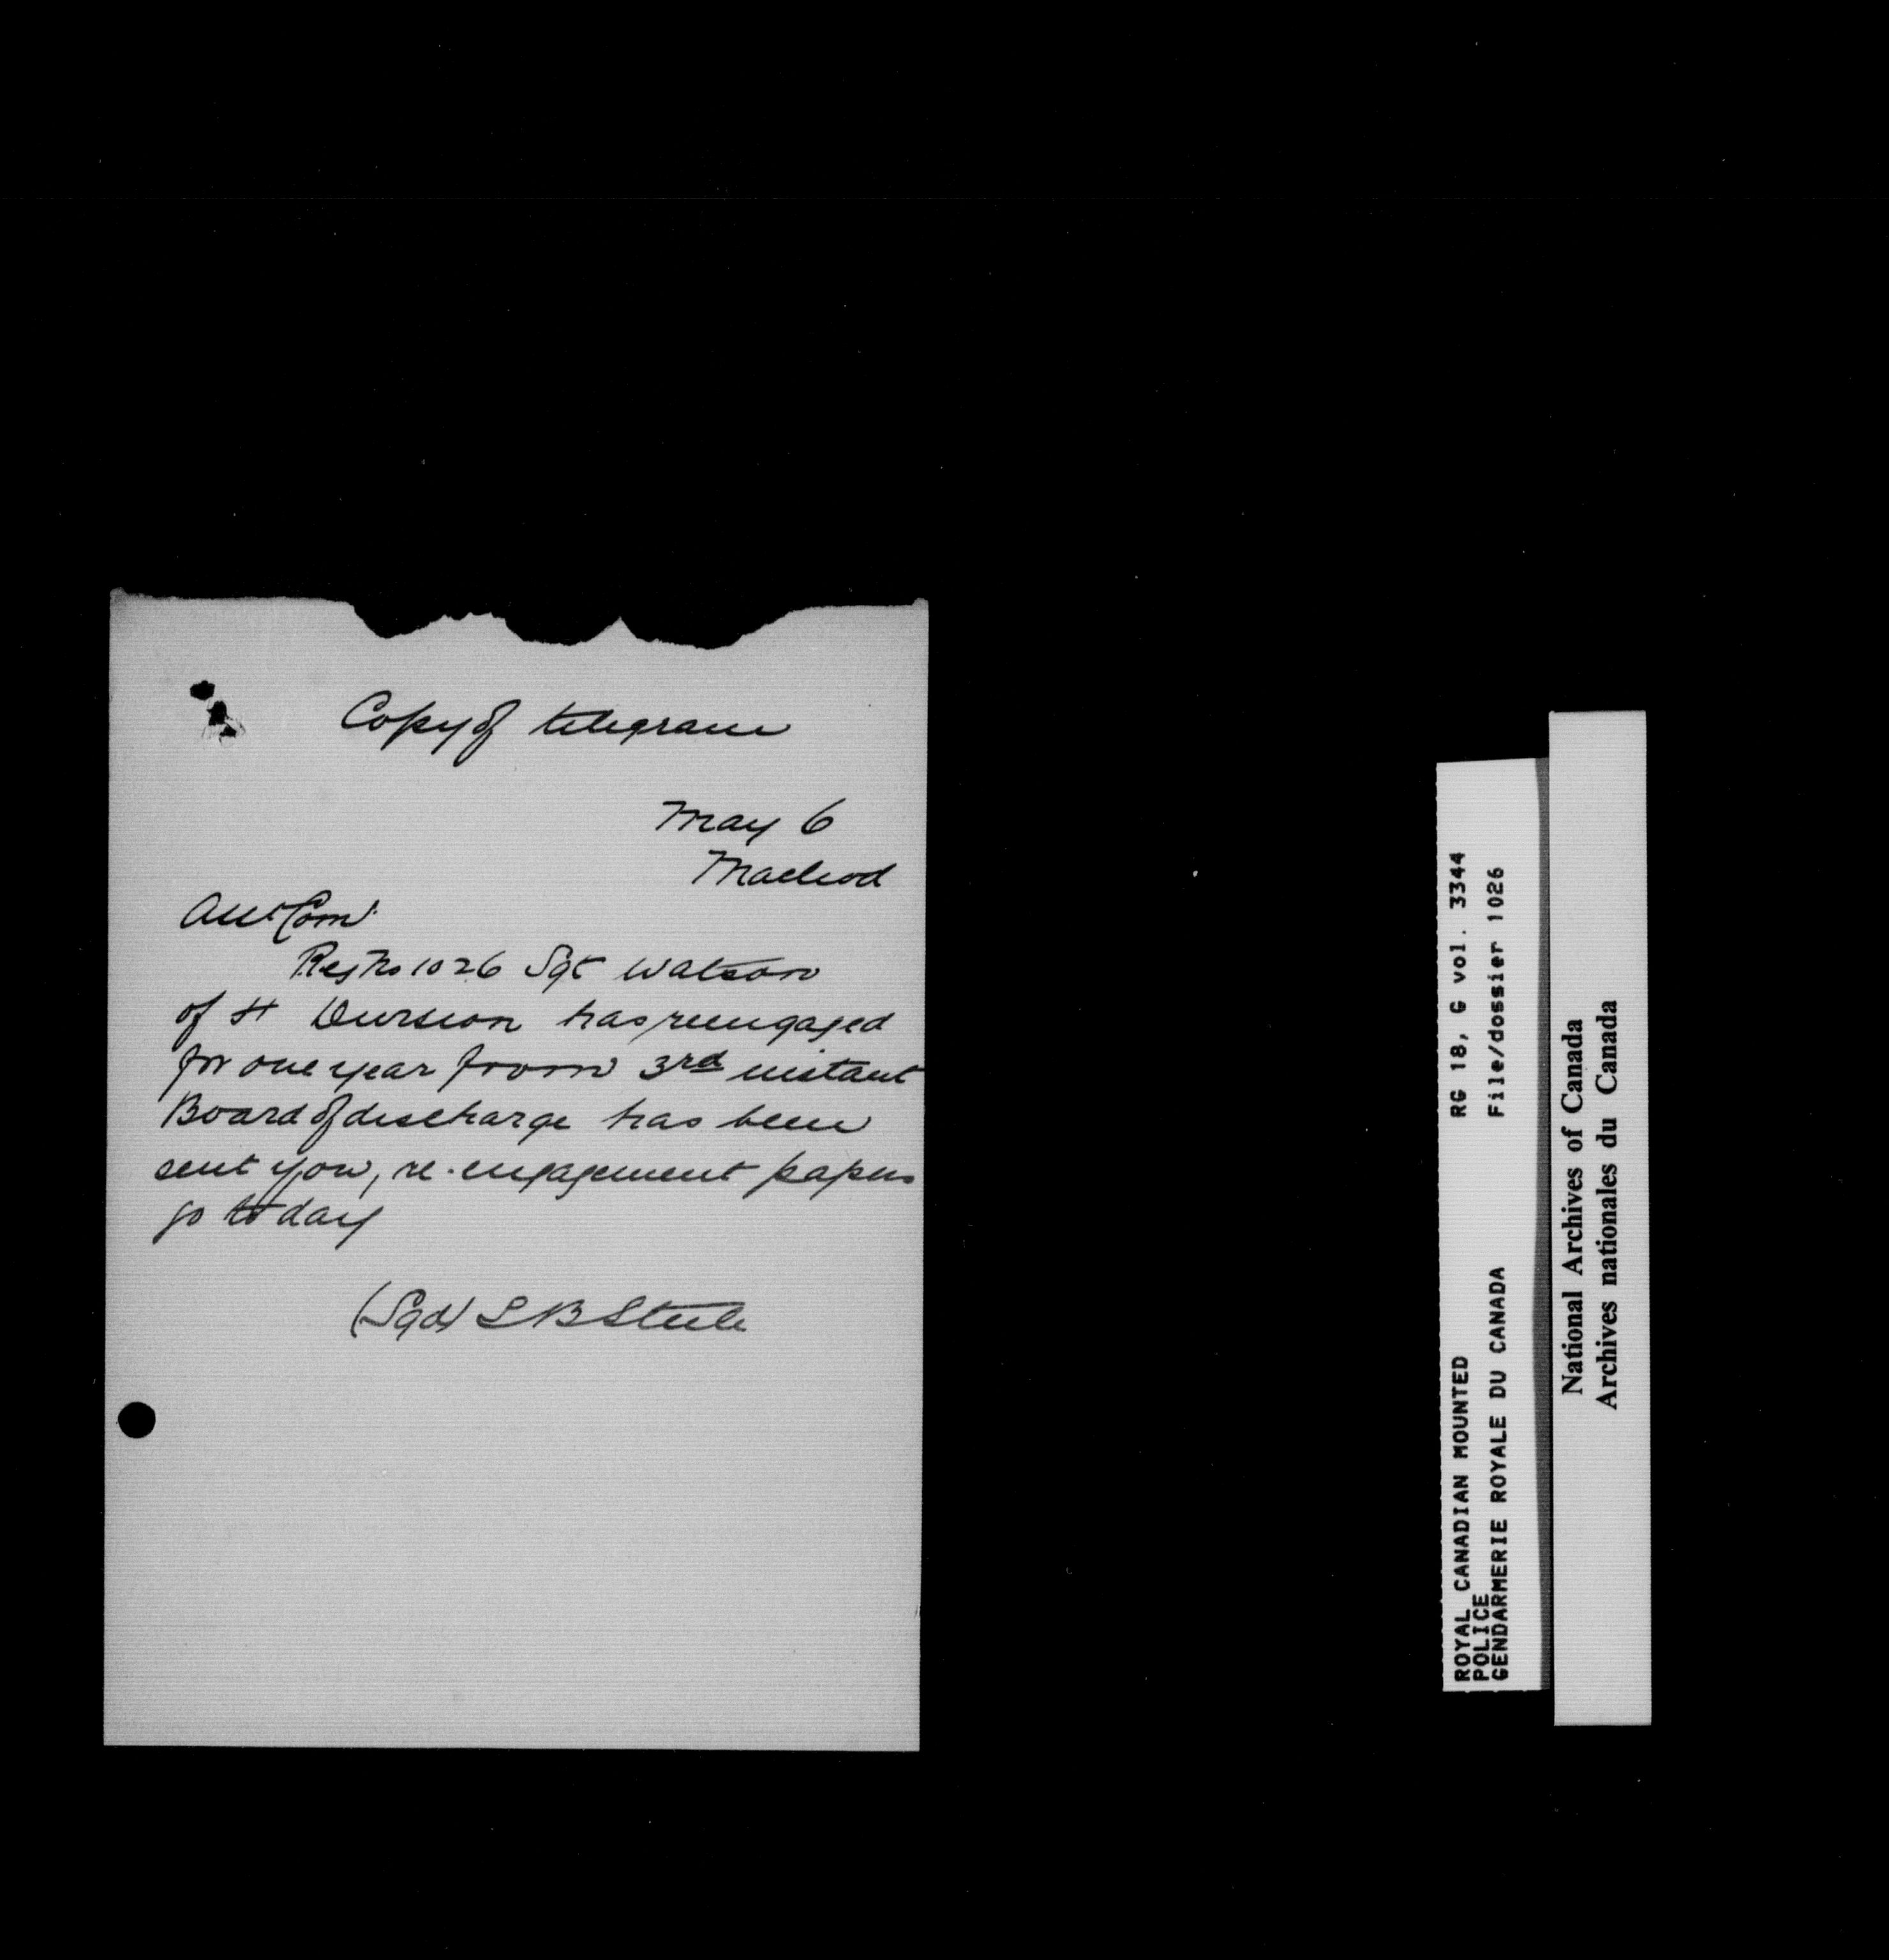 Copy of telegram
May 6
Macleod
Asst Comr
Reg No 1026 Sgt Watson
of H Division has reengaged
for one year from 3rd instant
Board of discharge has been
sent you, re-engagement papers
go to day
(Sgd) S B Steele
ROYAL CANADIAN MOUNTED
POLICE
GENDARMERIE ROYALE DU CANADA
RG 18, G vol. 3344
File/dossier 1026
National Archives of Canada
Archives nationales du Canada